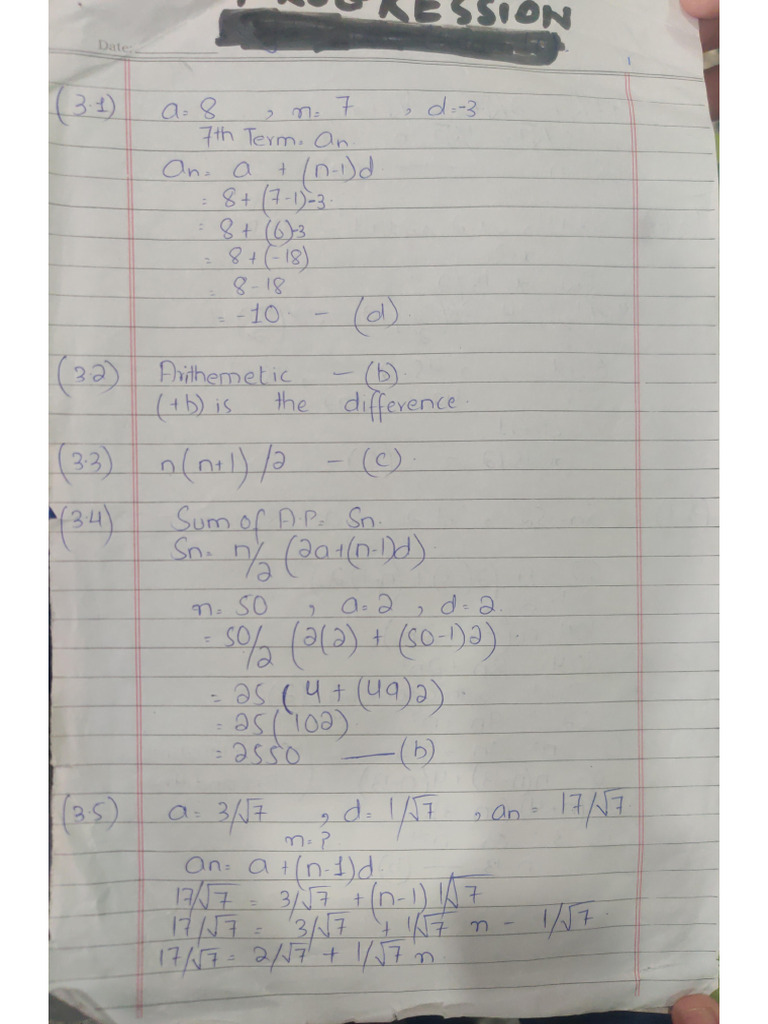 PROGRESSION
Date:
(3.1) a= 8 , n= 7 , d=-3
7th Term= an
an= a + (n-1)d
= 8+(7-1)-3
= 8+ (6)-3
= 8+(-18)
= 8-18
= -10 - (d)
(3.2) Arithemetic - (b)
(+b) is the difference.
(3.3) n(n+1)/2 - (c)
(3.4) Sum of A.P= Sn.
Sn= n/2 (2a+(n-1)d)
n= 50 , a=2 , d=2.
= 50/2 (2(2) + (50-1)2)
= 25 (4+(49)2)
= 25(102)
= 2550 —(b)
(3.5) a= 3/√7 , d= 1/√7 , an= 17/√7
n=?
an= a+(n-1)d
17/√7 = 3/√7 +(n-1) 1/√7
17/√7 = 3/√7 + 1/√7 n - 1/√7
17/√7= 2/√7 + 1/√7 n